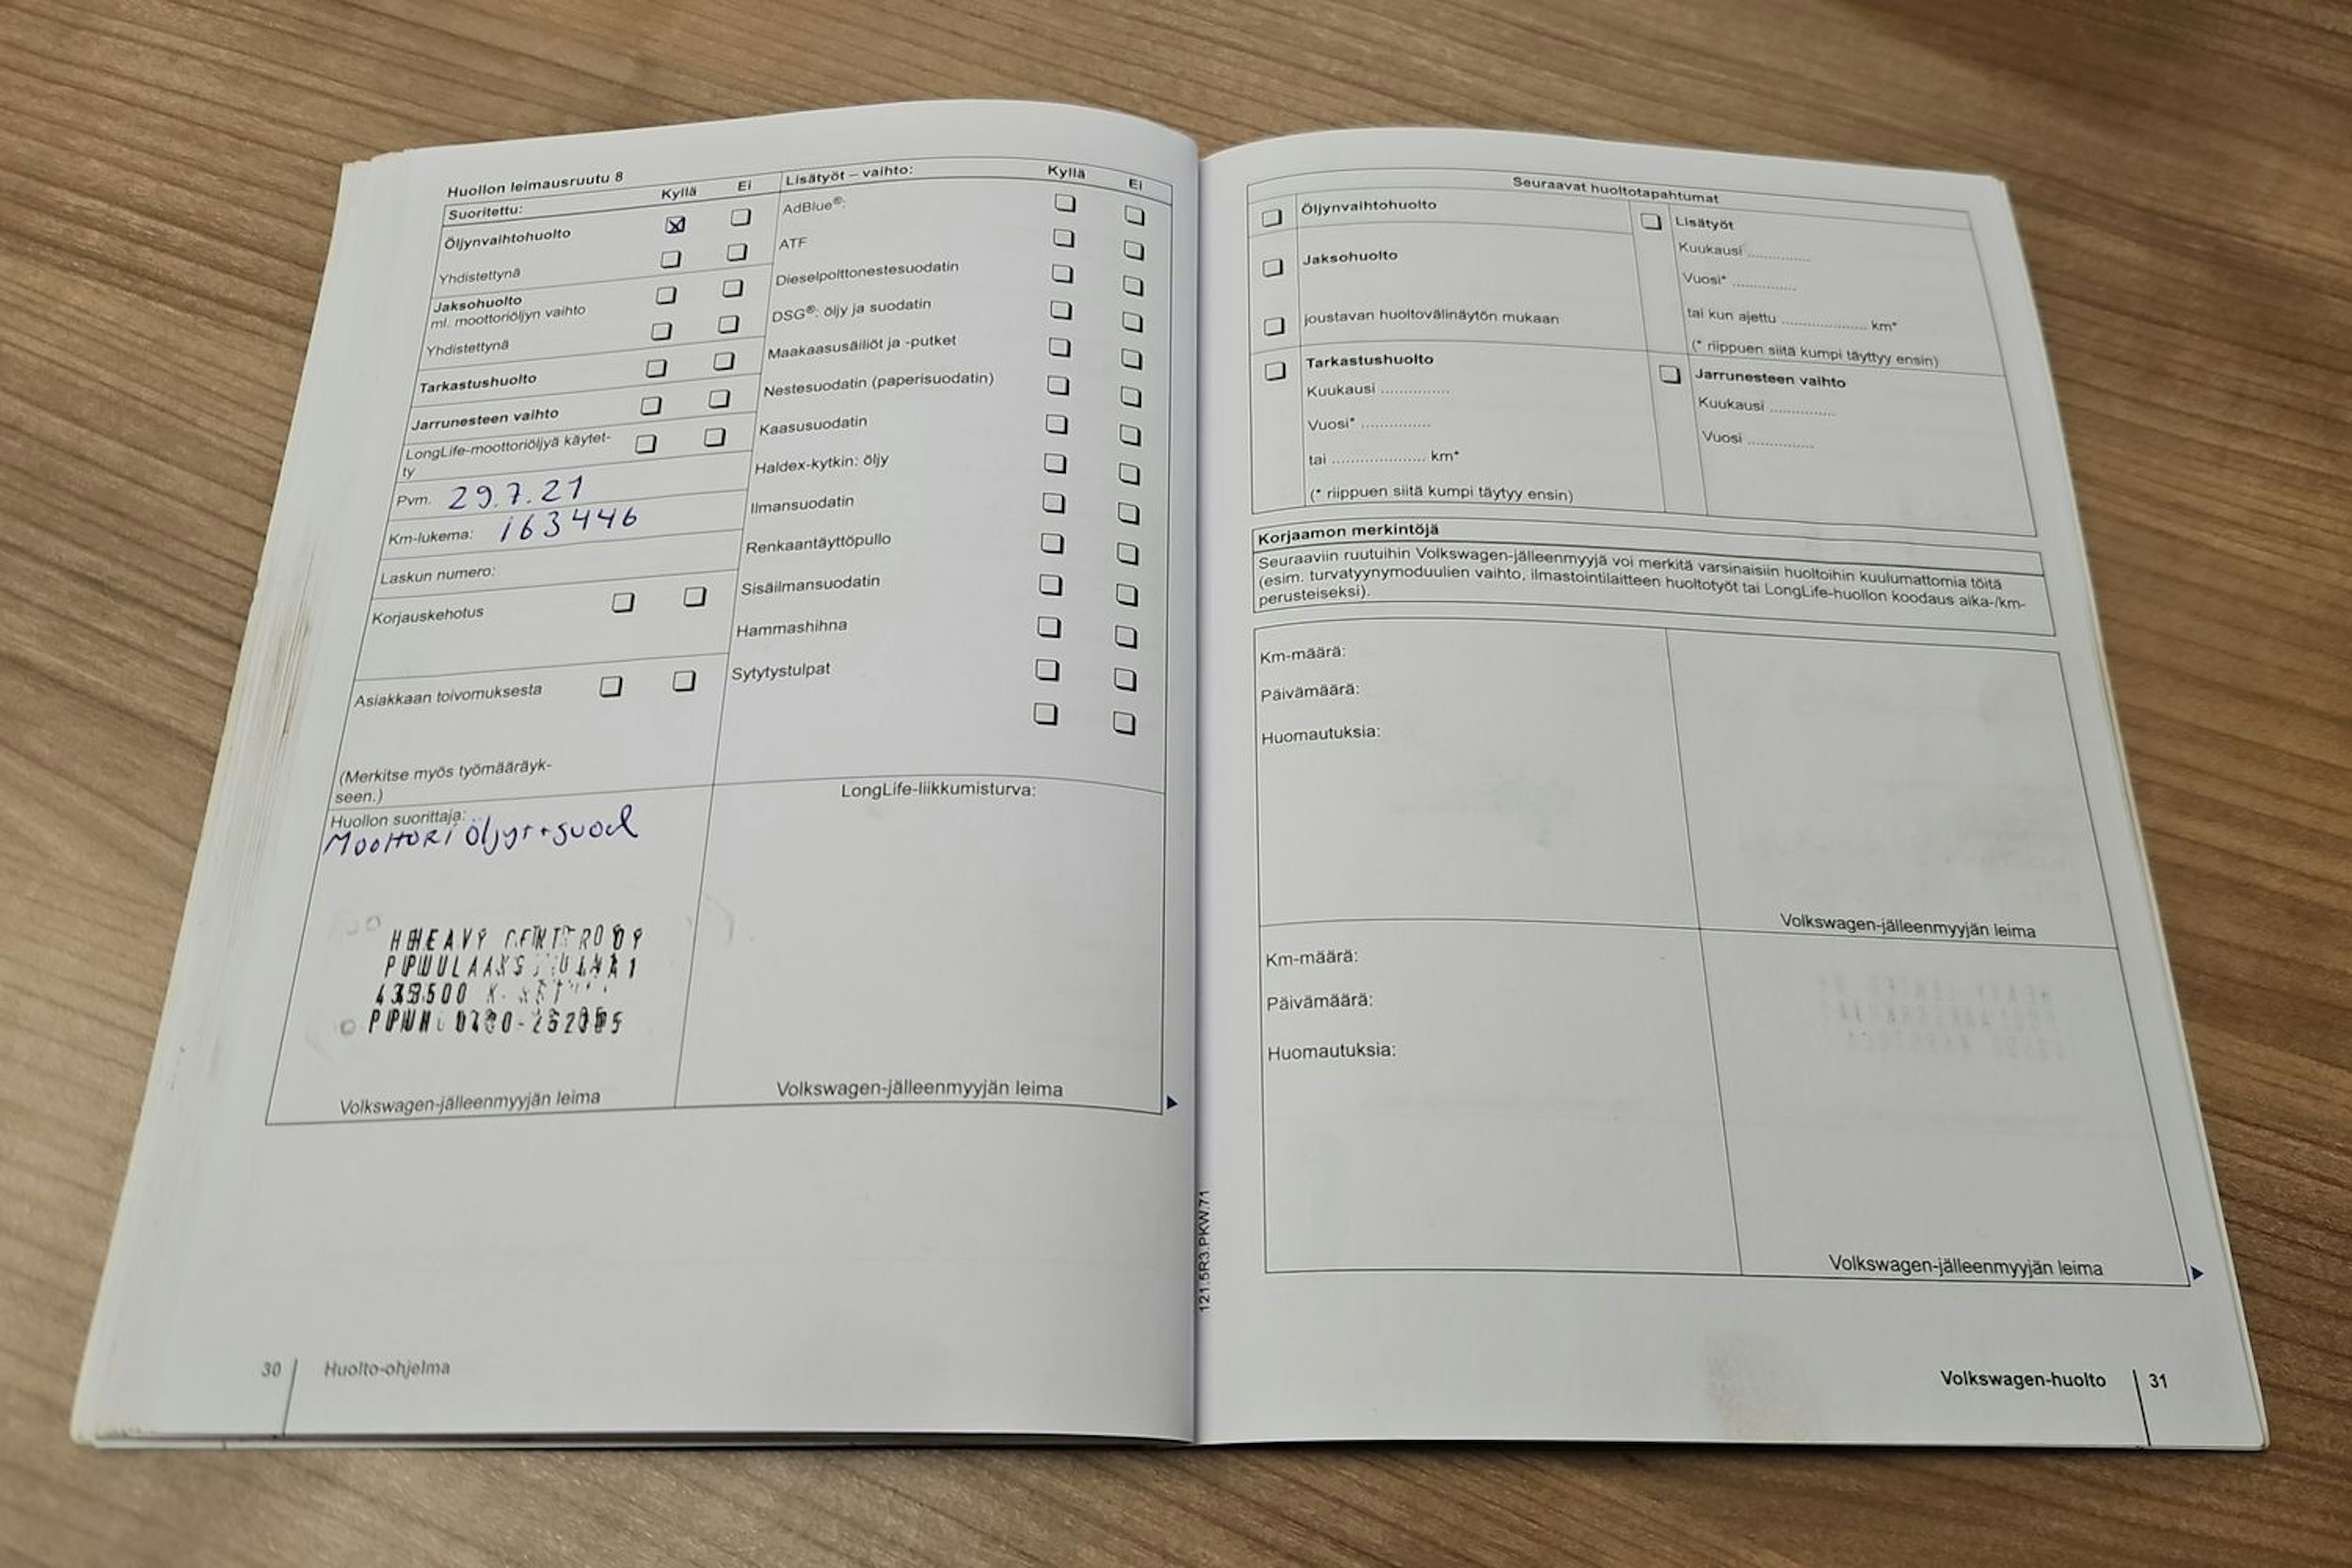 Huollon leimausruutu 8
Suoritettu: Kyllä Ei
Öljynvaihtohuolto
Yhdistettynä
Jaksohuolto
ml. moottoriöljyn vaihto
Yhdistettynä
Tarkastushuolto
Jarrunesteen vaihto
LongLife-moottoriöljyä käytet-
ty
Pvm. 29.7.21
Km-lukema: 163446
Laskun numero:
Korjauskehotus
Asiakkaan toivomuksesta
(Merkitse myös työmääräyk-
seen.)
Huollon suorittaja:
Moottori öljyt+suod
HEAVY
Volkswagen-jälleenmyyjän leima
Lisätyöt – vaihto: Kyllä Ei
AdBlue®:
ATF
Dieselpolttonestesuodatin
DSG®: öljy ja suodatin
Maakaasusäiliöt ja -putket
Nestesuodatin (paperisuodatin)
Kaasusuodatin
Haldex-kytkin: öljy
Ilmansuodatin
Renkaantäyttöpullo
Sisäilmansuodatin
Hammashihna
Sytytystulpat
LongLife-liikkumisturva:
Volkswagen-jälleenmyyjän leima
30 Huolto-ohjelma
Seuraavat huoltotapahtumat
Öljynvaihtohuolto
Jaksohuolto
joustavan huoltovälinäytön mukaan
Tarkastushuolto
Kuukausi ..............
Vuosi* ..............
tai ................... km*
(* riippuen siitä kumpi täytyy ensin)
Lisätyöt
Kuukausi .............
Vuosi* .............
tai kun ajettu ................. km*
(* riippuen siitä kumpi täyttyy ensin)
Jarrunesteen vaihto
Kuukausi .............
Vuosi .............
Korjaamon merkintöjä
Seuraaviin ruutuihin Volkswagen-jälleenmyyjä voi merkitä varsinaisiin huoltoihin kuulumattomia töitä
(esim. turvatyynymoduulien vaihto, ilmastointilaitteen huoltotyöt tai LongLife-huollon koodaus aika-/km-
perusteiseksi).
Km-määrä:
Päivämäärä:
Huomautuksia:
Volkswagen-jälleenmyyjän leima
Km-määrä:
Päivämäärä:
Huomautuksia:
Volkswagen-jälleenmyyjän leima
121.5R3.PKW.71
Volkswagen-huolto 31